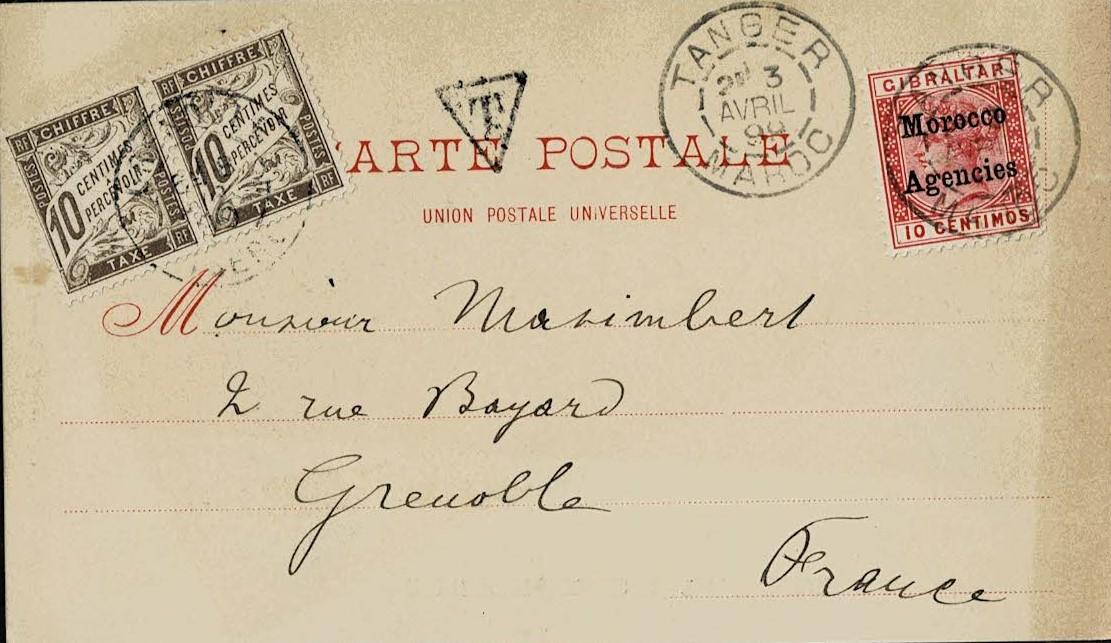 RF CHIFFRE RF
POSTES
10 CENTIMES
À PERCEVOIR
POSTES
TAXE RF
RF CHIFFRE
POSTES
10 CENTIMES
À PERCEVOIR
POSTES
TAXE RF
T
TANGER
3
AVRIL
MAROC
GIBRALTAR
Morocco
Agencies
10 CENTIMOS
CARTE POSTALE
UNION POSTALE UNIVERSELLE
Monsieur Masimbert
2 rue Bayard
Grenoble
France